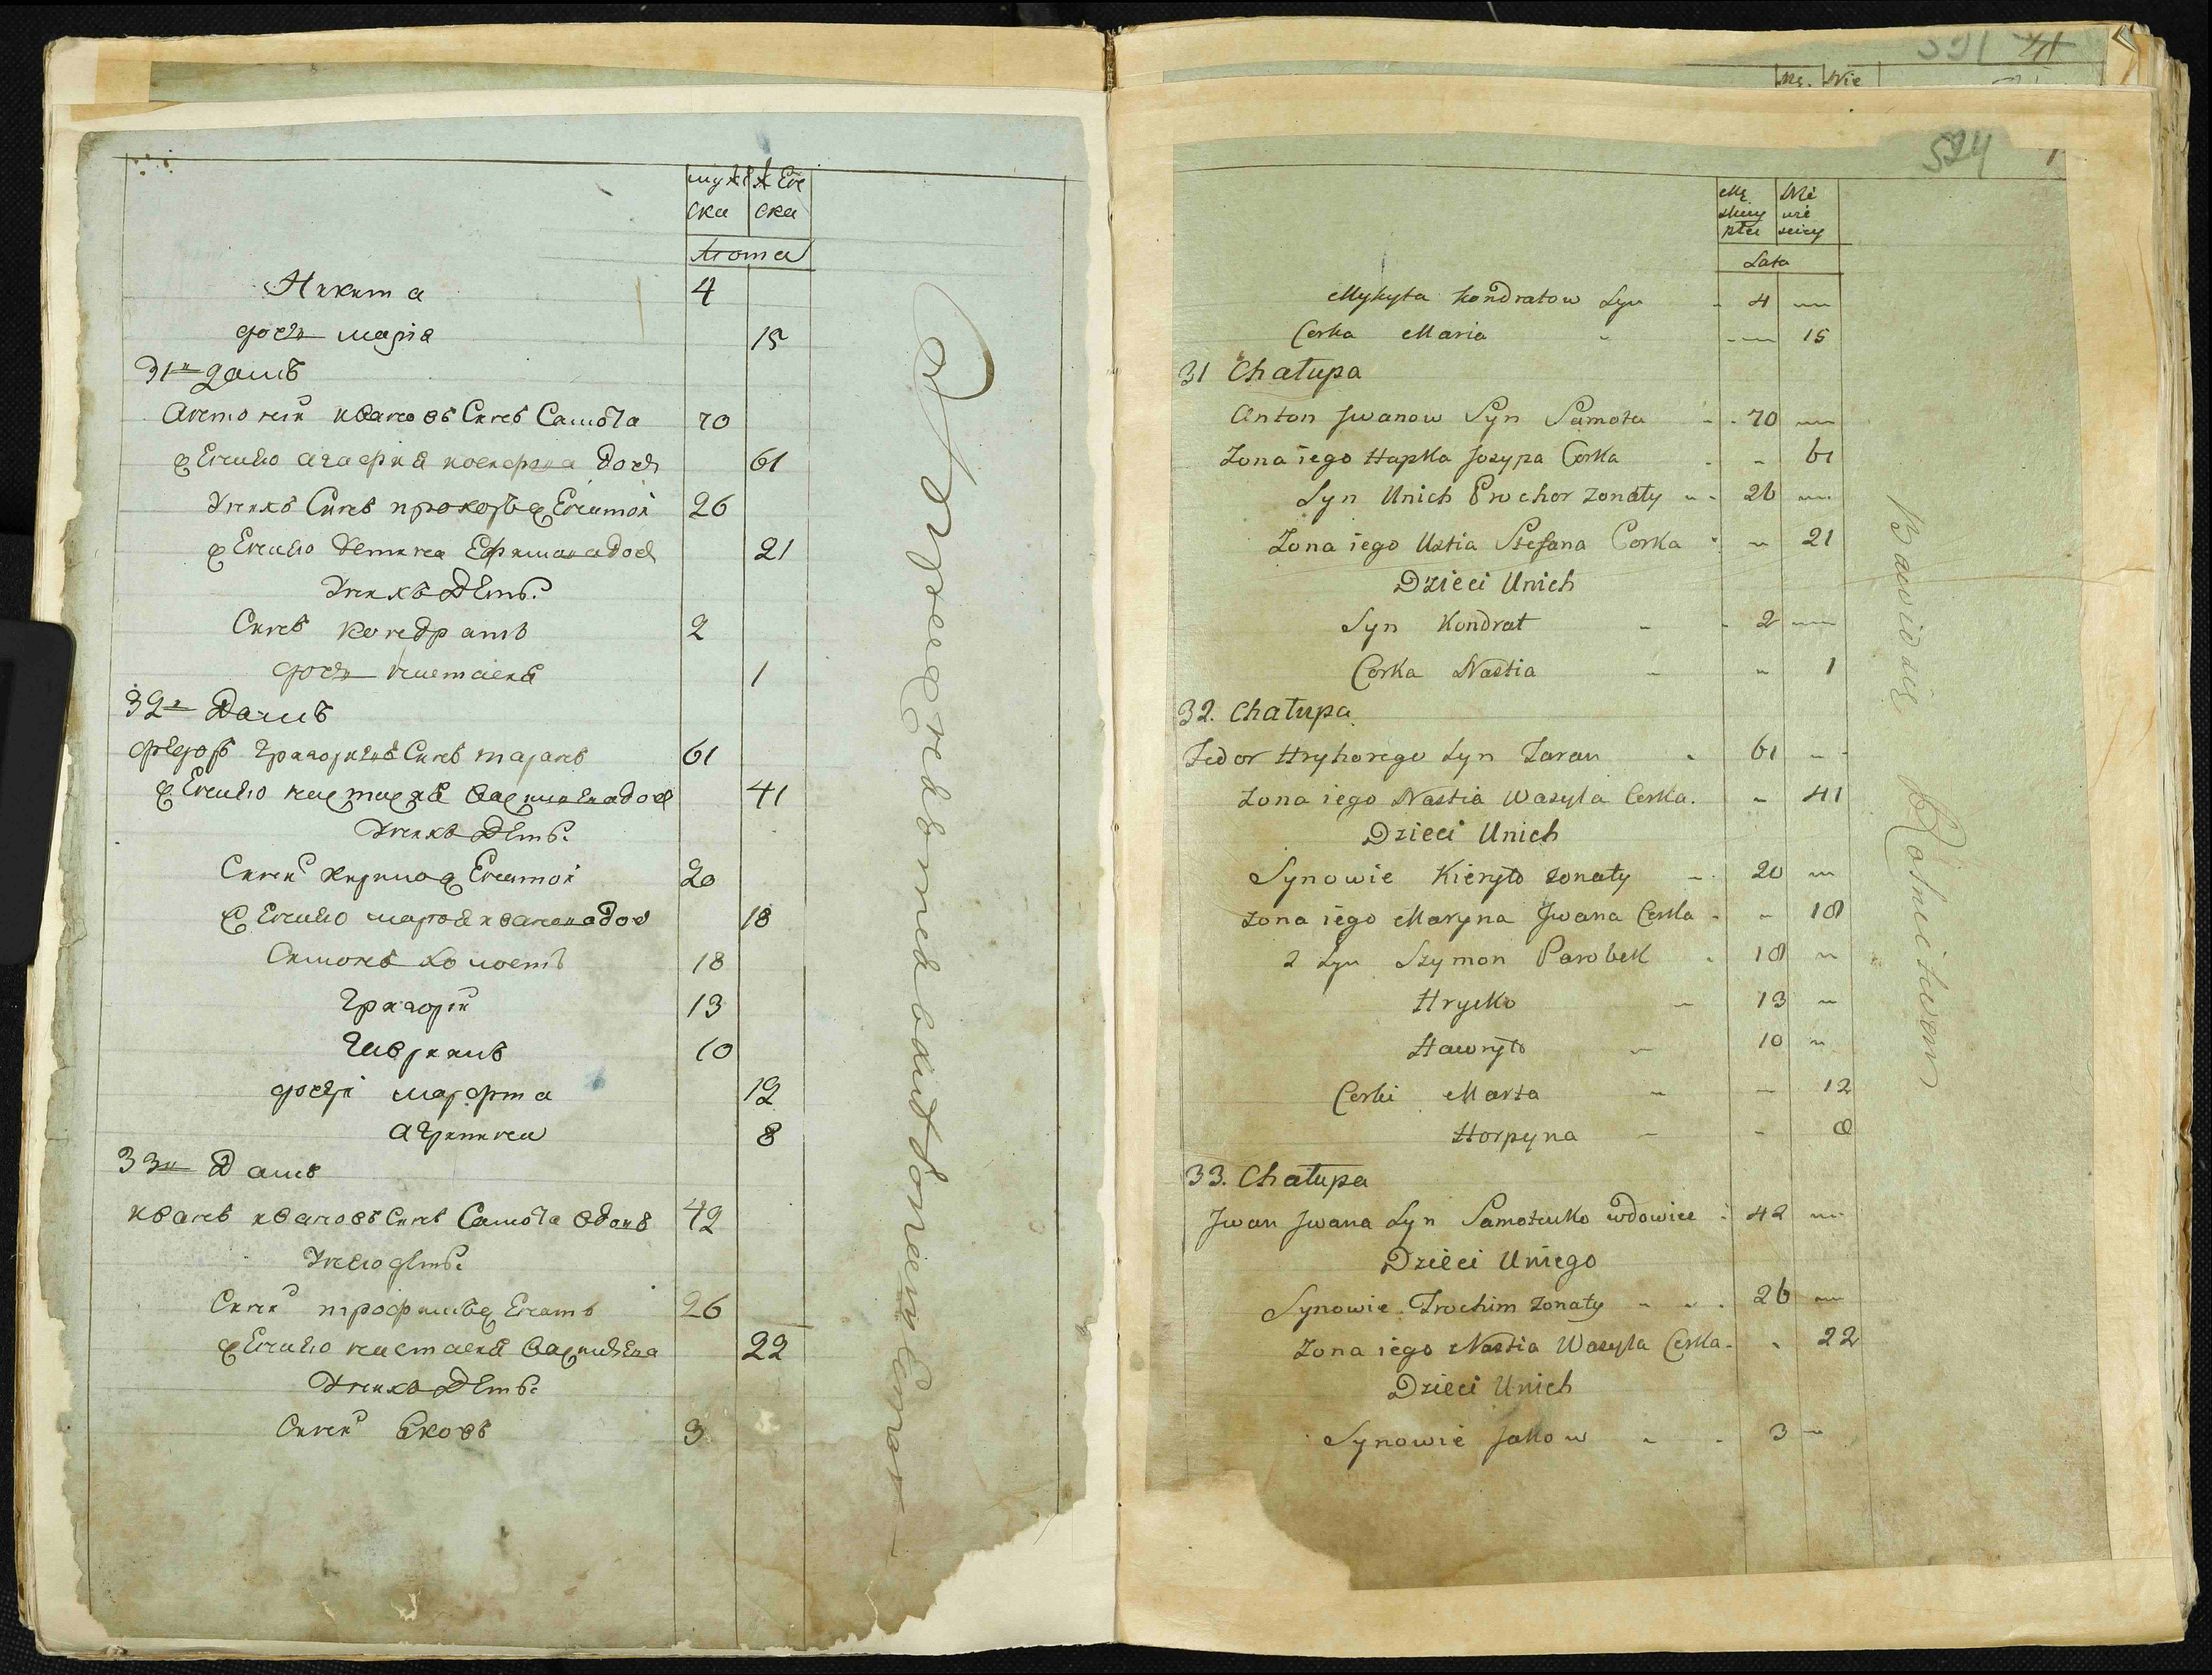 мужс женс
ка ска
Лета
Никита 4
дочь мария 15
31й домъ
Антоній Ивановъ Синъ Самота 70
жена его агафия иосифова дочь 61
У нихъ Синъ прохоръ женатой 26
жена его устина дочь 21
У нихъ Дети:
Синъ Кондратъ 2
дочь настасия 1
32й Домъ
федоръ григориевъ Синъ таранъ 61
жена его настасия василиева дочь 41
У нихъ Дети:
Сини кирило женатой 20
жена его марина иванова дочь 18
Симонъ холостъ 18
григорій 13
гаврилъ 10
дочери марфта 12
агрипина 8
33й Домъ
иванъ ивановъ Синъ Самота вдовъ 42
У него дети:
Сини трофимъ женатъ 26
жена его настасия василиева 22
У нихъ Дети:
Сини Яковъ 3
591 41
Mę. Nie
524
Mę Nie
skiey wie
płci sciey
Lata
Mykyta Kondratow Syn - 4 —
Corka Maria - — 15
31 Chałupa
Anton Jwanow Syn Samota - 70 —
Zona iego Hapka Jozypa Corka - - 61
Syn Unich Prochor zonaty - 26 —
Zona iego Ustia Stefana Corka - 21
Dzieci Unich
Syn Kondrat - - 2 —
Corka Nastia - - 1
32. Chałupa
Fedor Hryhorego Syn Taran - 61 - -
Zona iego Nastia Wasyla Corka. - 41
Dzieci Unich
Synowie Kieryło zonaty - 20 —
Zona iego Maryna Jwana Corka - - 18
2 Syn Szymon Parobek - 18 —
Hrycko - 13 —
Hawryło - 10 —
Corki Marta - — 12
Horpyna - - 8
33. Chałupa
Jwan Jwana Syn Samotenko wdowiec - 42 —
Dzieci Uniego
Synowie Trochim zonaty - - - 26 —
Zona iego Nastia Wasyla Corka - - 22
Dzieci Unich
Synowie Jakow - - 3 —